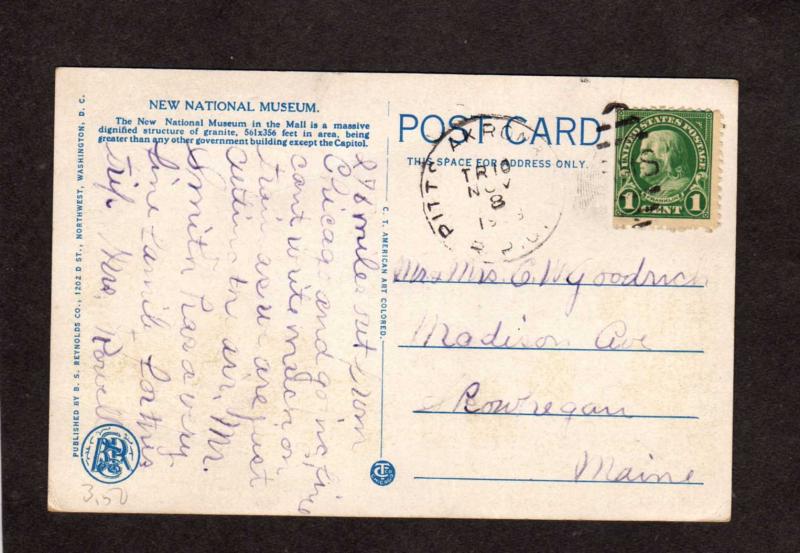 NEW NATIONAL MUSEUM.
The New National Museum in the Mall is a massive
dignified structure of granite, 561x356 feet in area, being
greater than any other government building except the Capitol.
278 miles out from
Chicago and going fine
cant write much on
train as we are just
cutting the air. Mr.
Smith has a very
fine family for this
trip. Mrs. Rowell
PUBLISHED BY B. S. REYNOLDS CO., 1202 D ST., NORTHWEST, WASHINGTON, D. C.
C. T. AMERICAN ART COLORED.
POST CARD
THIS SPACE FOR ADDRESS ONLY.
PITTS AKRON
TR10
NOV
8
19
R.P.O.
UNITED STATES POSTAGE
FRANKLIN
1 CENT 1
Mr & Mrs. C. W Goodrich
Madison Ave
Skowhegan
Maine
3.50